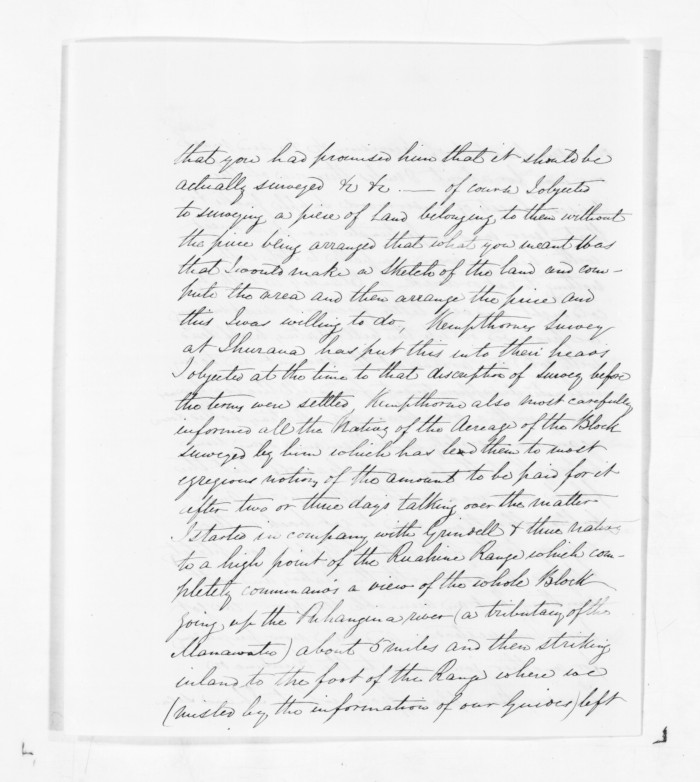 that you had promised him that it should be
actually surveyed &c &c — of course I objected
to surveying a piece of Land belonging to them without
the price being arranged that what you meant was
that I would make a sketch of the land and com-
pute the area and then arrange the price and
this I was willing to do, Kempthornes Survey
at Ihuraua has put this into their heads
I objected at the time to that discription of survey before
the terms were settled, Kempthorne also most carefully
informed all the Natives of the Acreage of the Block
surveyed by him which has lead them to most
egregious notions of the amount to be paid for it
after two or three days talking over the matter
I started in company with Grindell & three natives
to a high point of the Ruahine Range which com-
pletely commands a view of the whole Block
going up the Pohangina river (a tributary of the
Manawatu) about 5 miles and then striking
inland to the foot of the Range where we
(misled by the information of our Guides) left